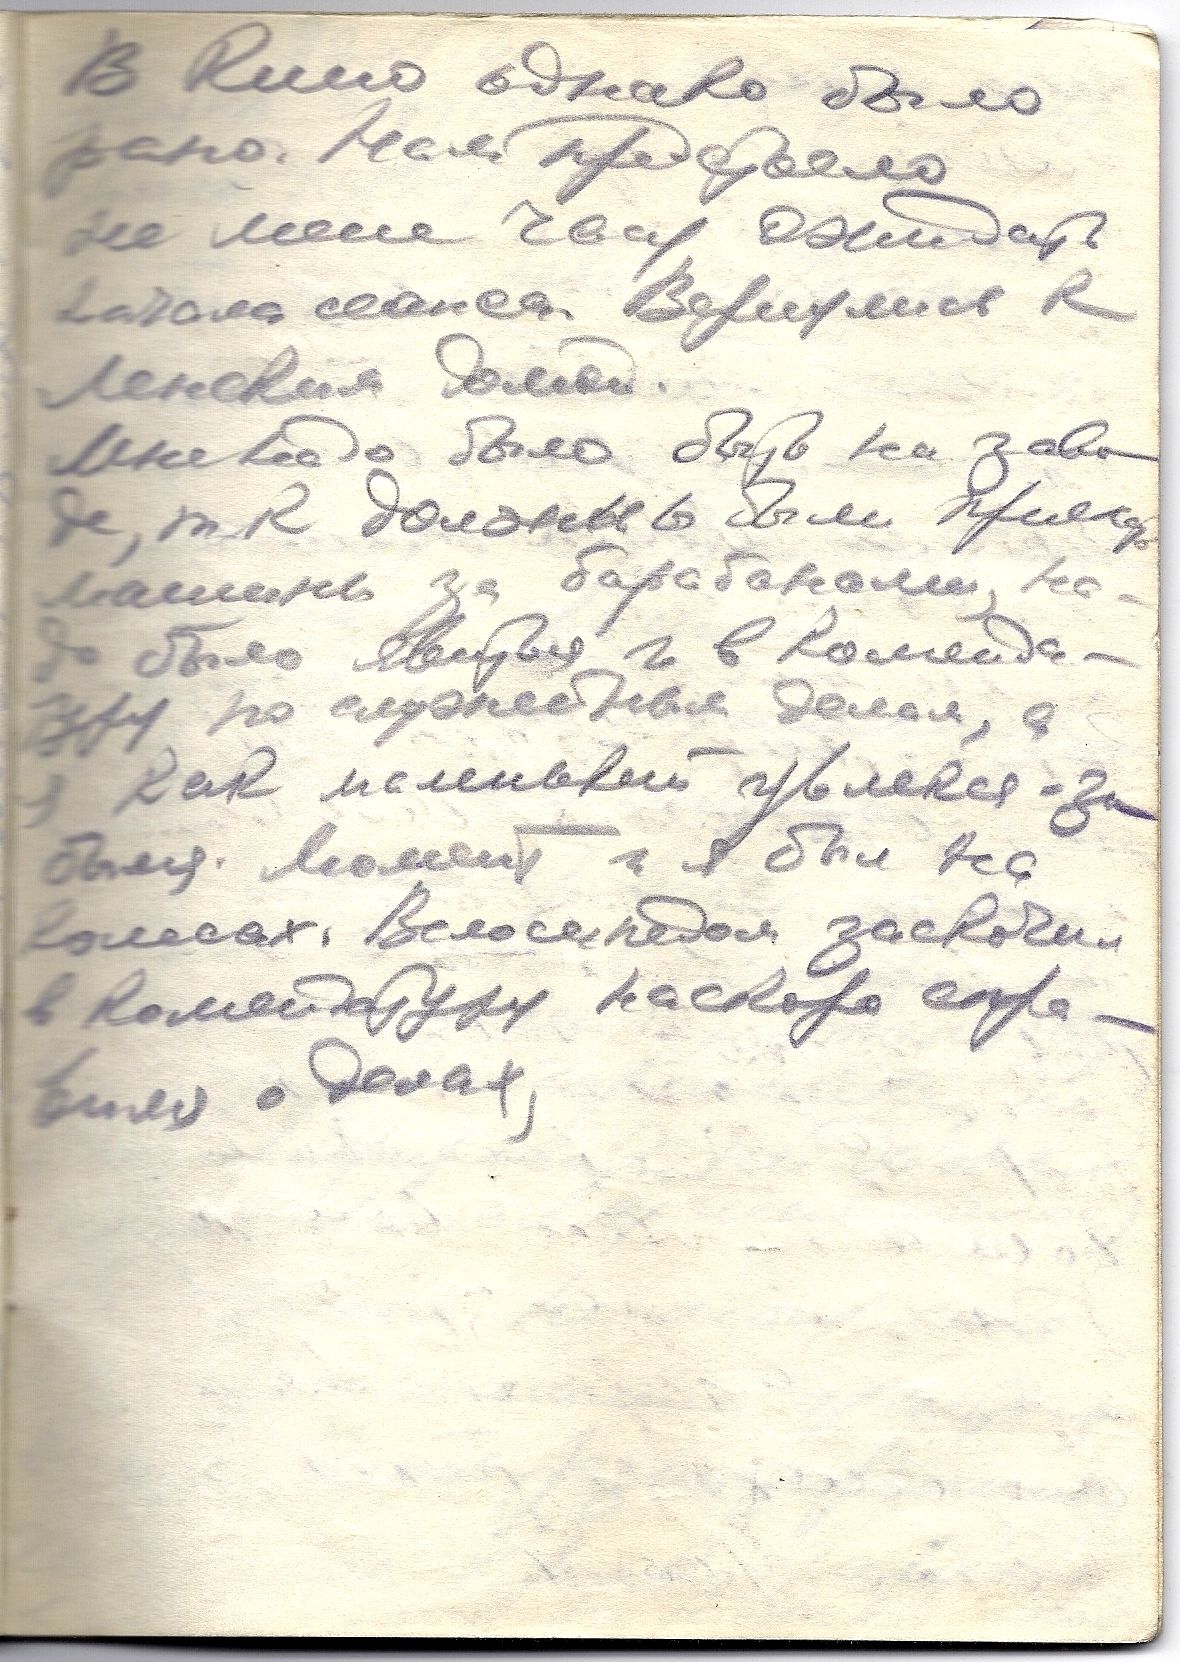 В кино однако было
рано. Нам предстояло
не мене часу ожидать
начала сеанса. Вернулись к
Ленский домой.
Мне надо было быть на заво-
де, т к должны были приехать
машины за барабанами, на-
до было явиться и в коменда-
туру по служебным делам, а
я как маленький увлекся - за
былся. Момент и я был на
колесах. Велосипедом заскочил
в комендатуру наскоро спра-
вился о делах,